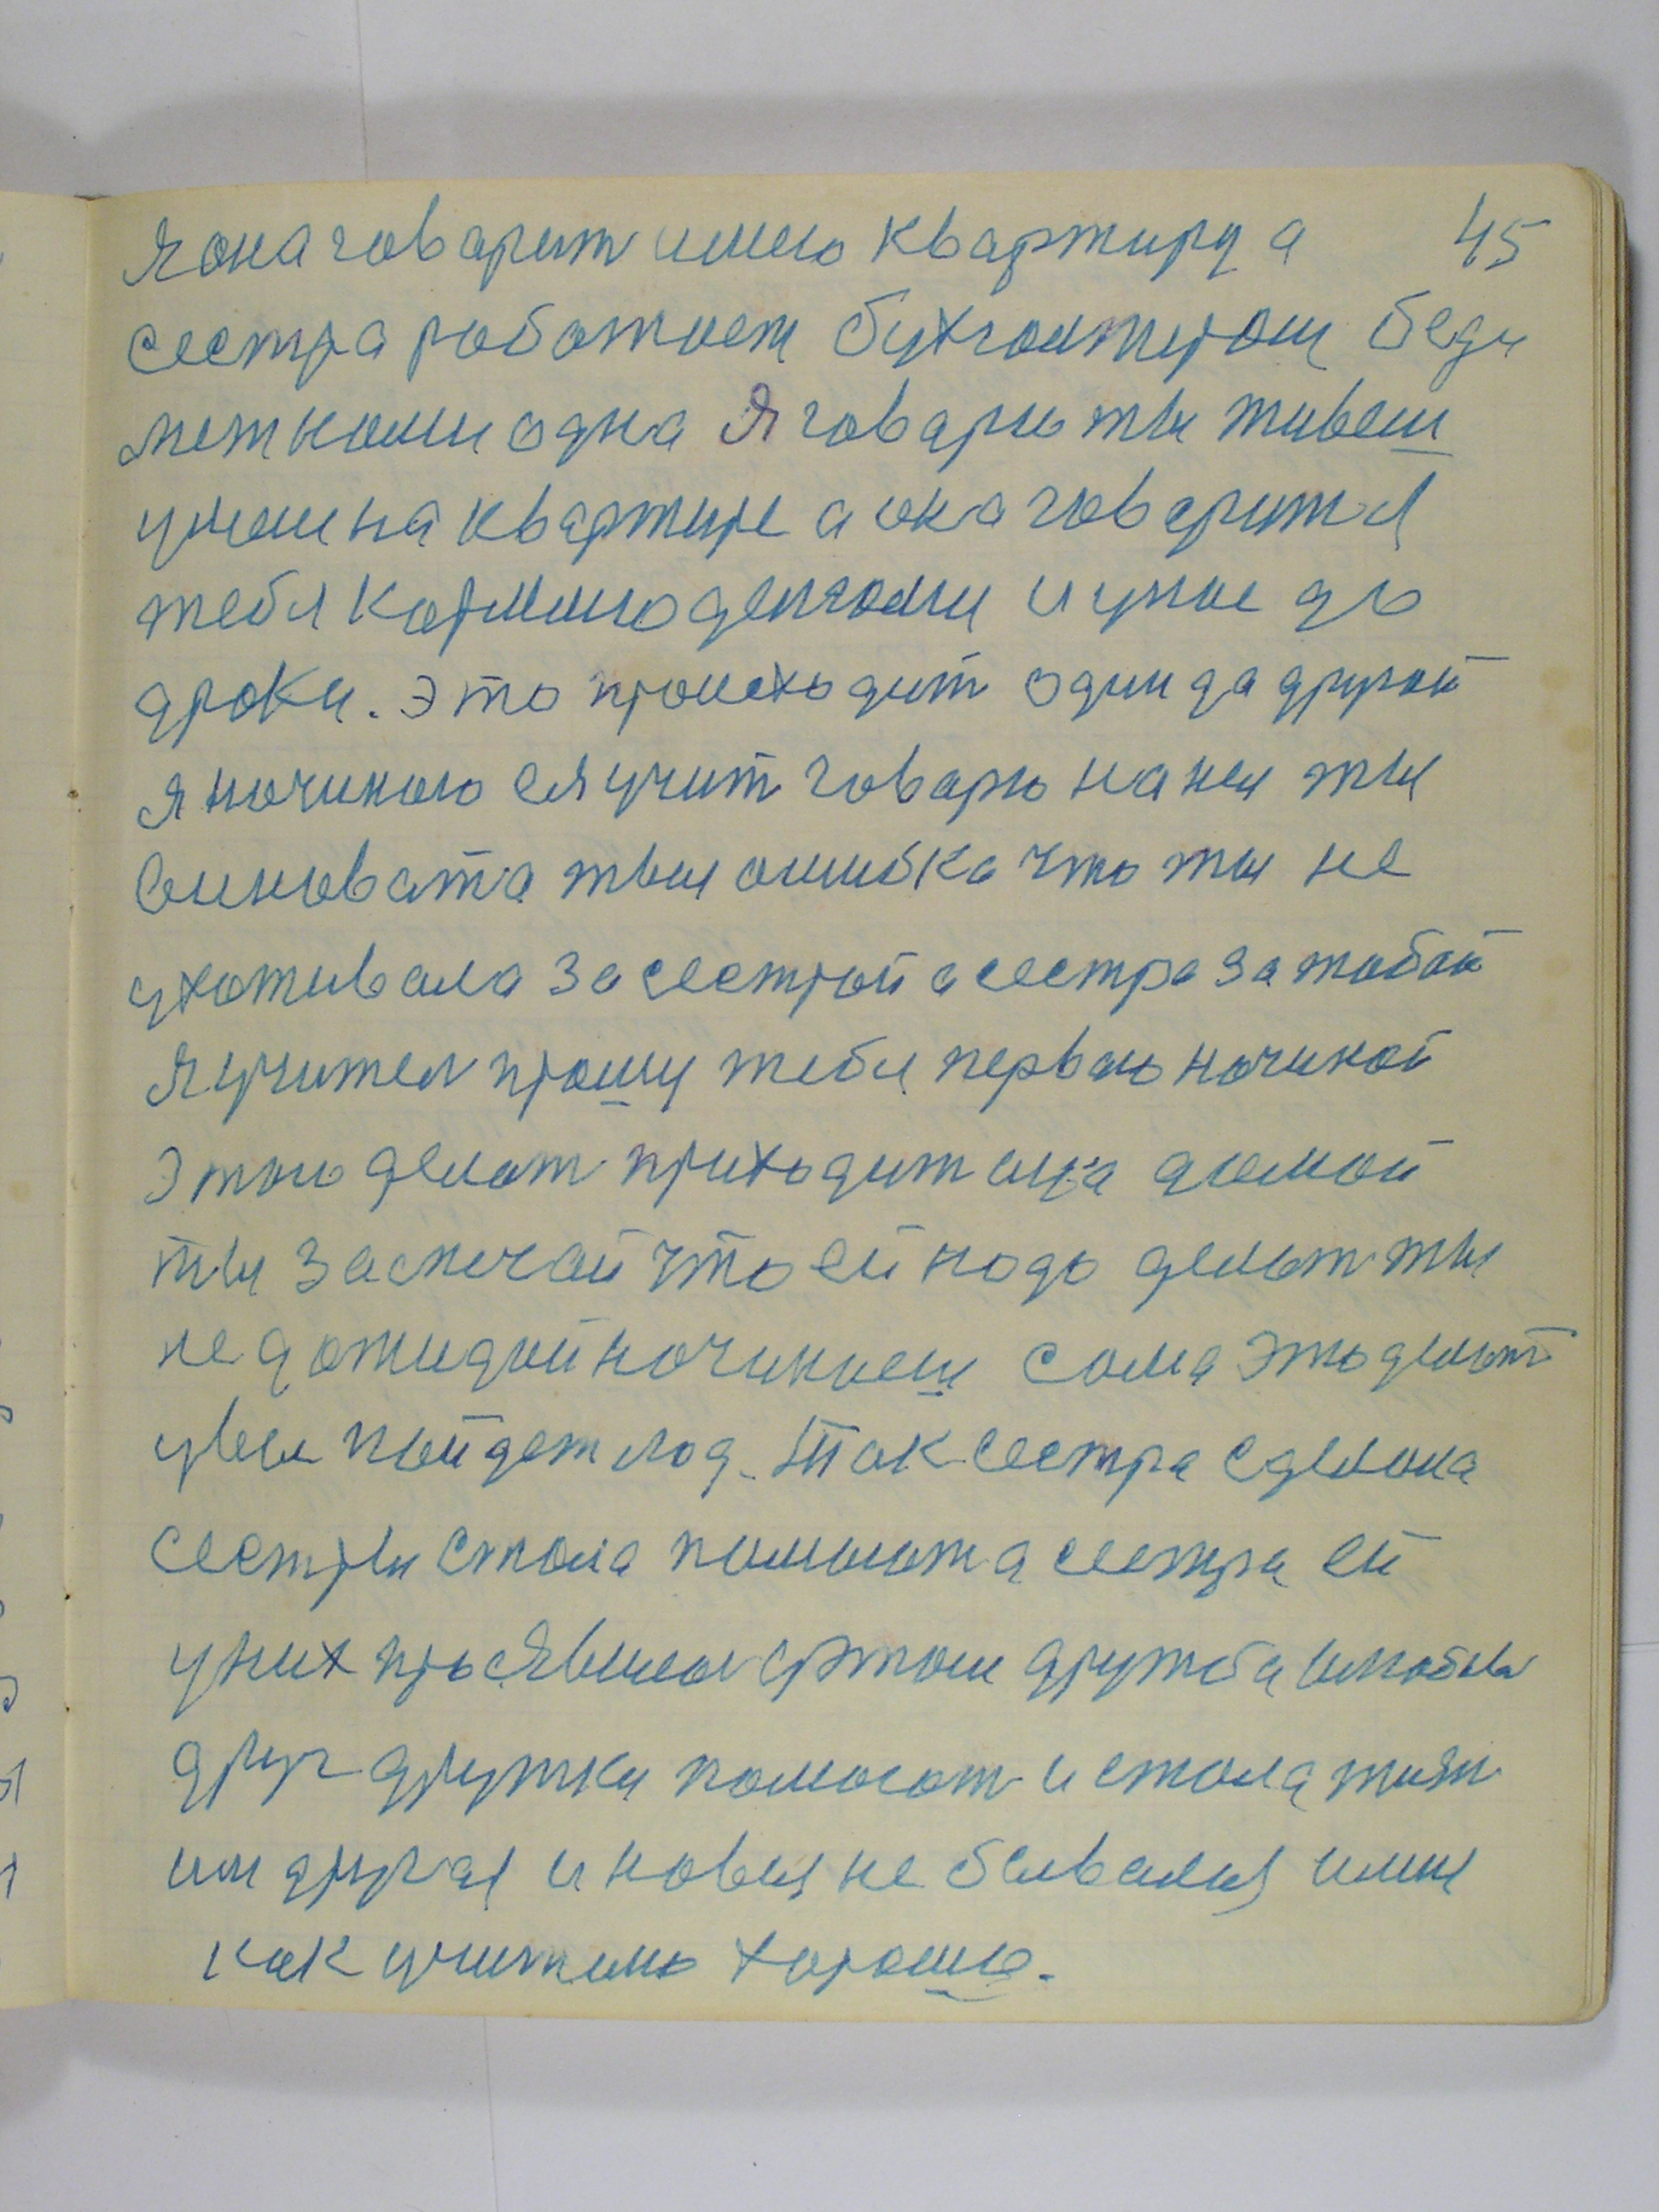 45
Я она говарит имею квартиру а
сестра работает бухгалтером беды
меж нами одна Я говарю ты живеш
умены на квартире а она говарит я
тебя кармлю деньгами и у нас до
драки. Это происходит один да другой
я начинаю ея учит говарю на нея ты
виновата твоя ошибка что ты не
ухаживала за сестрой а сестра за тобой
Я учител прошу тебя первою начинай
этого делат приходит она домой
ты замечай что ей надо делат ты
не дожидай начинаеш сама это делат
у вас пайдет лад. Так сестра сделала
сестры стала помогат а сестра ей
у них проявилас в этом дружба и любовь
друг дружки помогат и стала жизн
им другая и новыя не бывалыя и мне
как учителю хорошо.